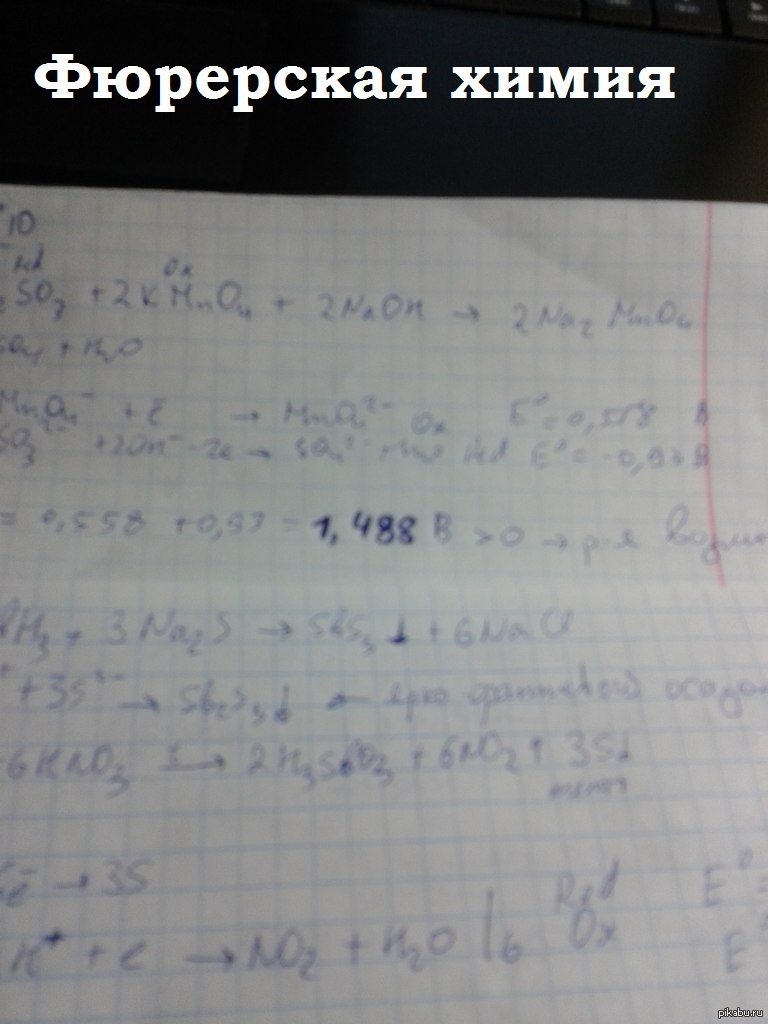 Фюрерская химия
10
Red
Ox
SO3 + 2KMnO4 + 2NaOH → 2Na2MnO4
SO4 + H2O
MnO4⁻ + ē → MnO4²⁻ Ox E° = 0,558 В
SO3²⁻ + 2OH⁻ - 2e → SO4²⁻ + H2O Red E° = -0,93 В
= 0,558 + 0,93 = 1,488 В >0 → р-я
+ 3Na2S → ↓ + 6NaCl
+ 3S²⁻ → Sb2S3↓ ← ярко оранжевый осадок
6HNO3 → + 6NO2↑ 3S↓
6ē → 3S
Red E° =
H⁺ + ē → NO2 + H2O | 6 Ox E°
pikabu.ru